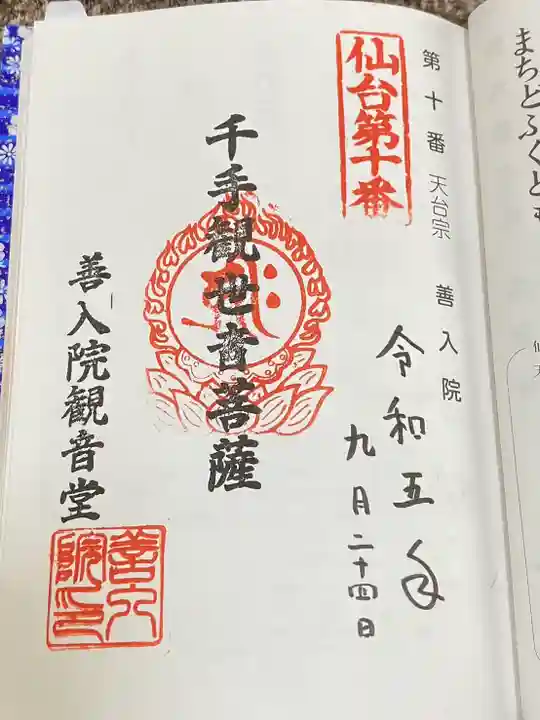 まちどふくとも
仙台第十番
第十番 天台宗 善入院
令和五年
九月二十四日
千手観世音菩薩
善入院観音堂
善入院印